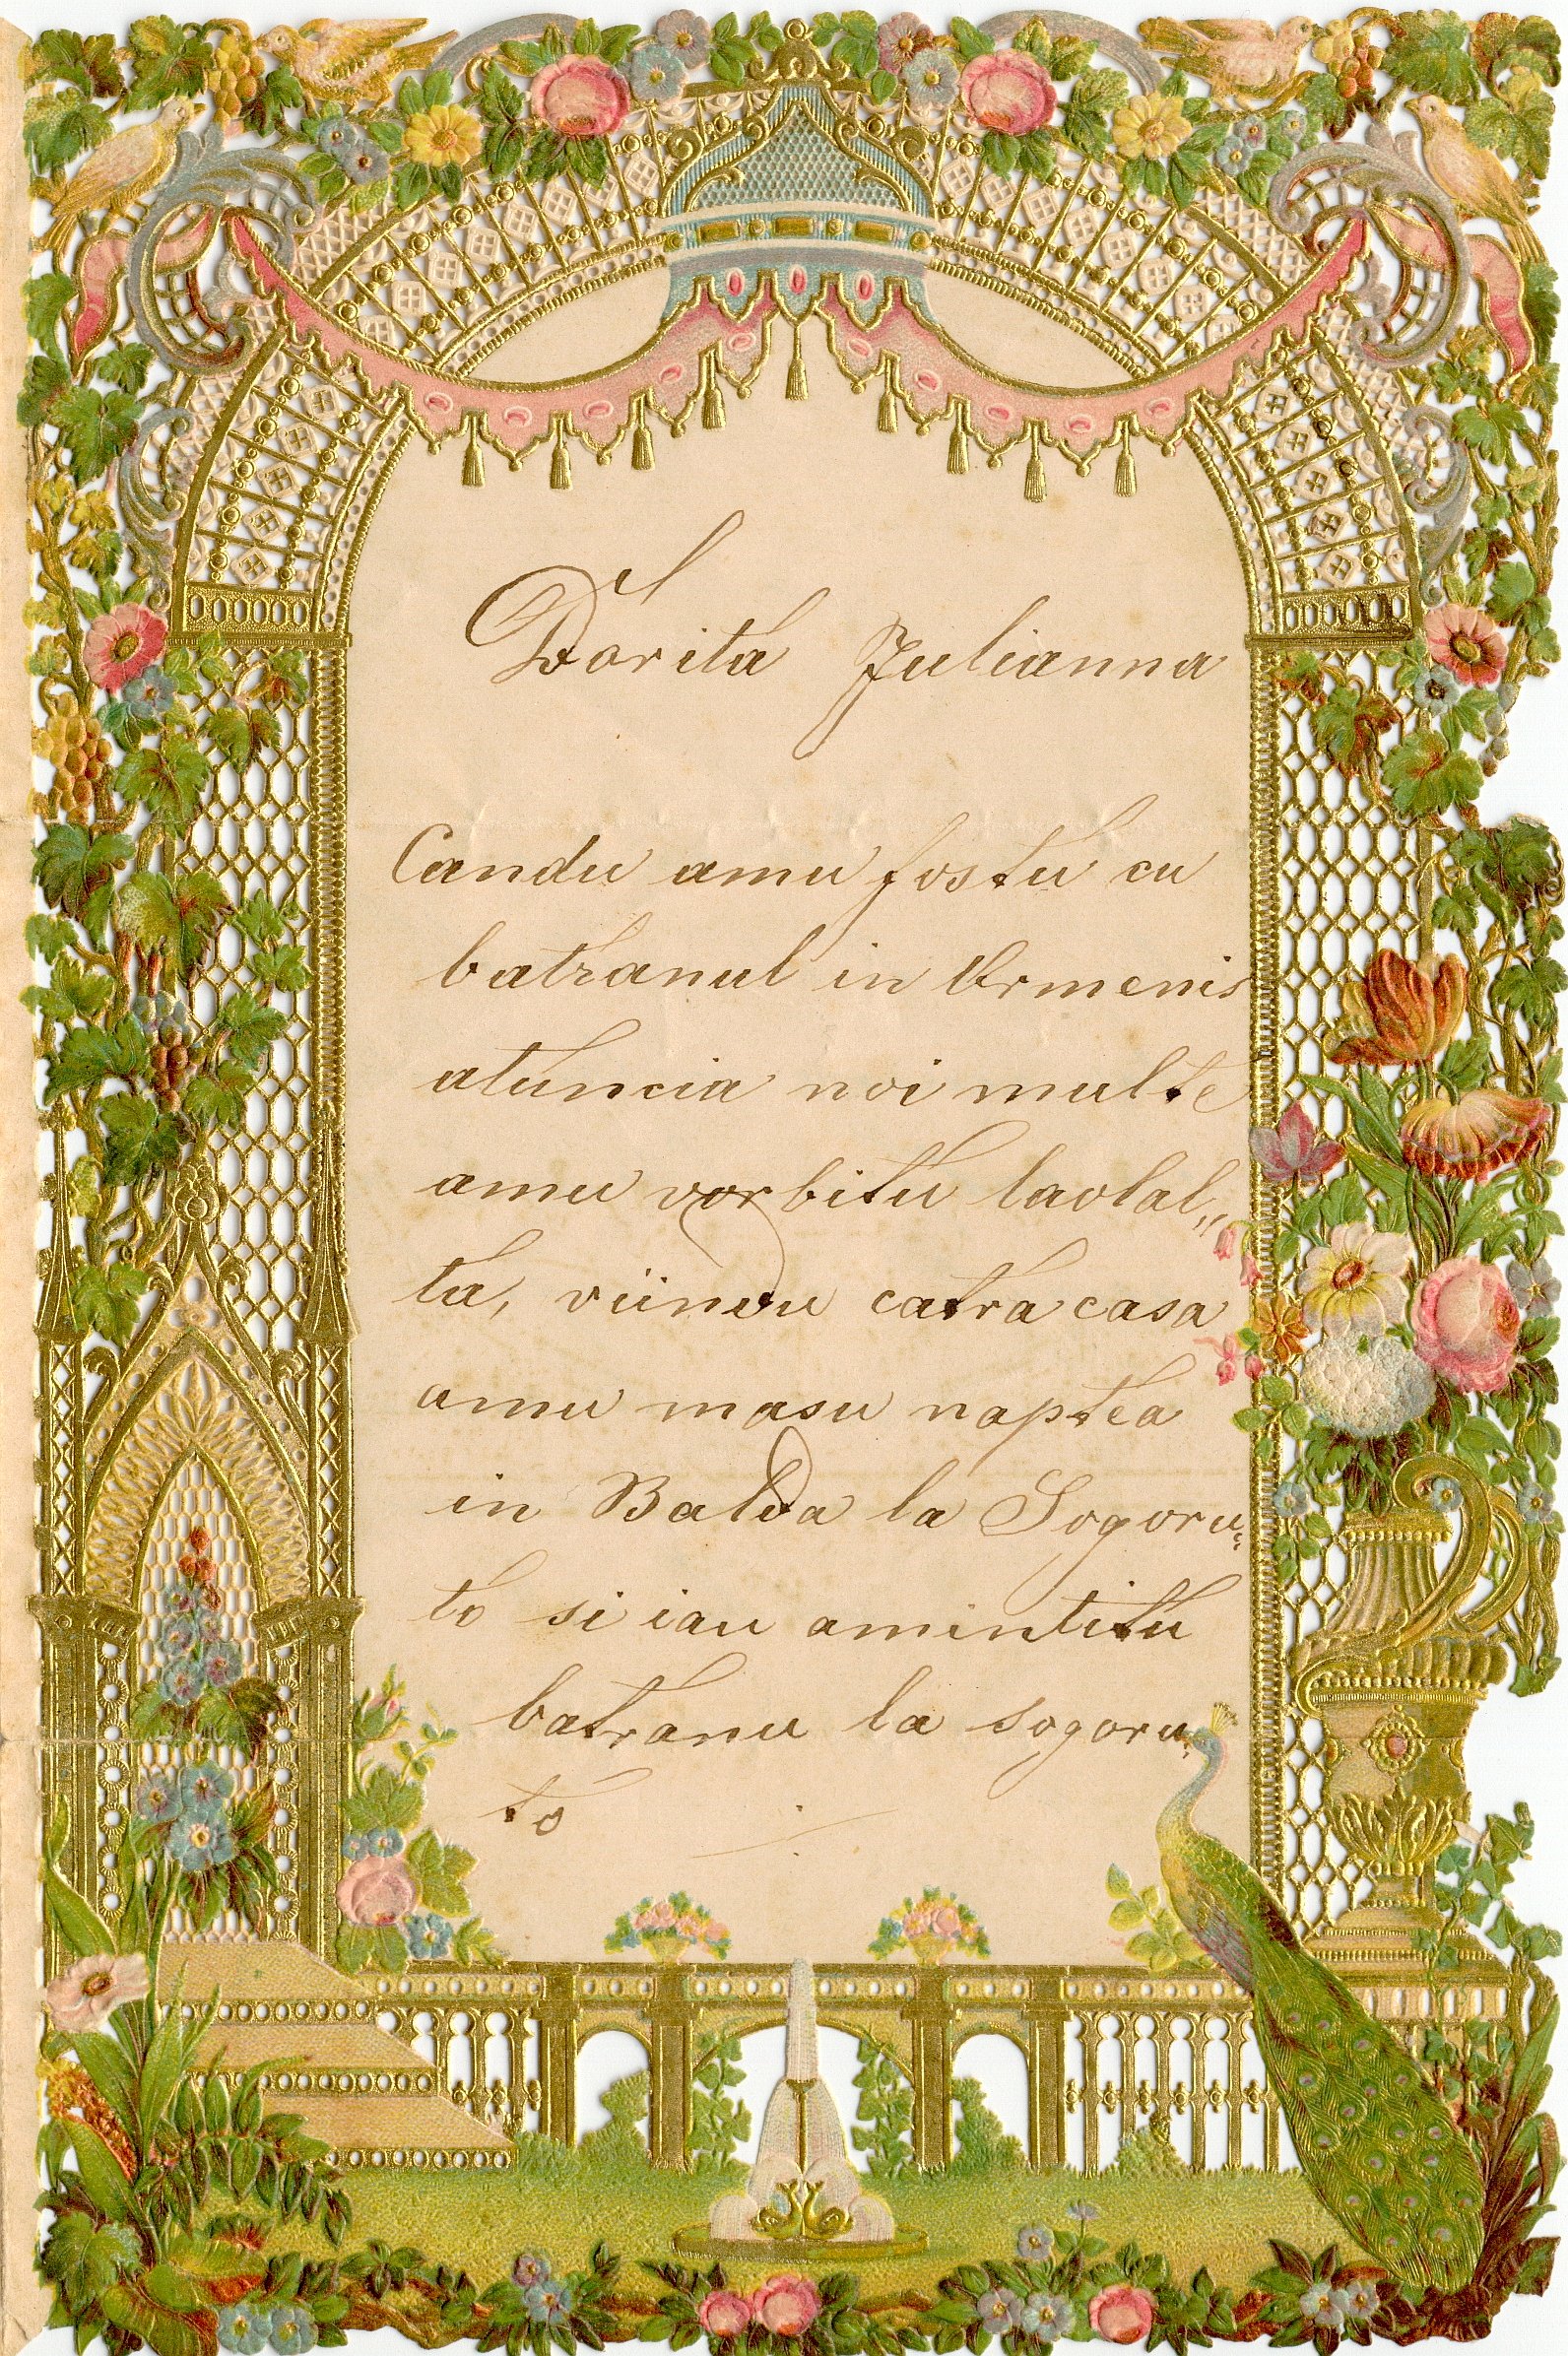 Dorita Julianna
Candu amu fostu cu
batranul in Urmenis
atuncia noi multe
amu vorbitu laolal„
ta, viindu catra casa
amu masu naptea
in Balda la Sogoru„
to si iau amintitu
batranu la sogoru„
to